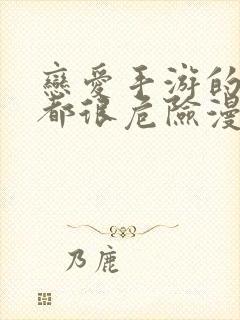 戀愛手游的
都很危險漫
乃鹿